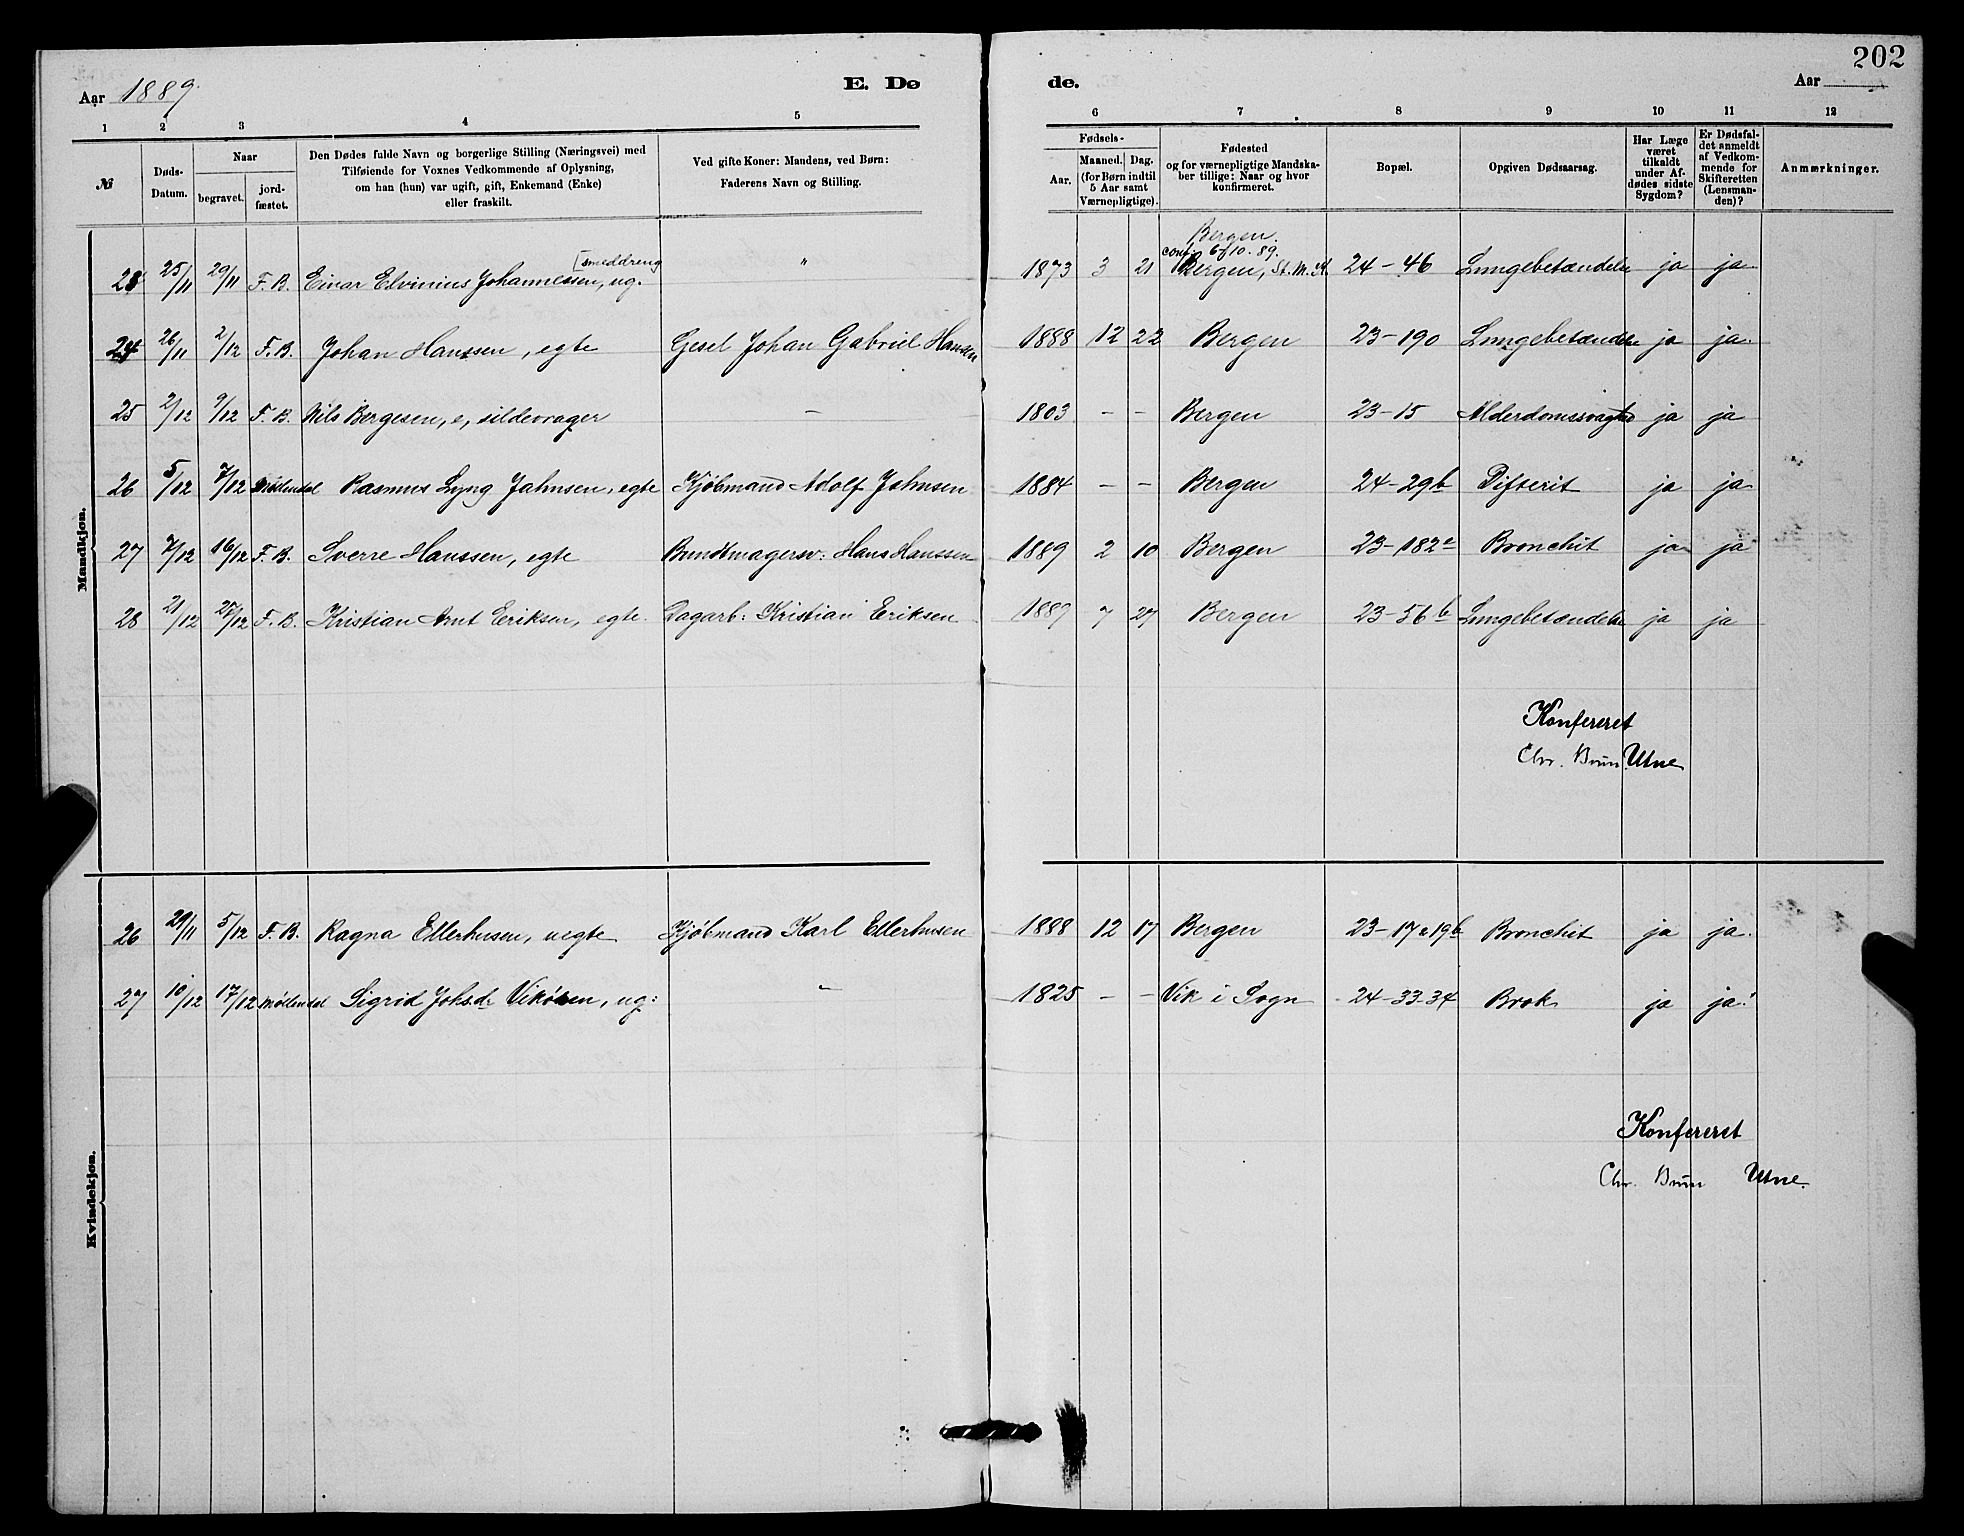 202
Aar 1889.
E. Dø
de.
Aar
1 2 3 4 5 6 7 8 9 10 11 12
№
Døds-Datum.
Naar
begravet.
jord-fæstet.
Den Dødes fulde Navn og borgerlige Stilling (Næringsvei) med
Tilføiende for Voxnes Vedkommende af Oplysning,
om han (hun) var ugift, gift, Enkemand (Enke)
eller fraskilt.
Ved gifte Koner: Mandens, ved Børn:
Faderens Navn og Stilling.
Fødsels-
Aar.
Maaned. Dag.
(for Børn indtil
5 Aar samt
Værnepligtige).
Fødested
og for værnepligtige Mandska-
ber tillige: Naar og hvor
konfirmeret.
Bopæl.
Opgiven Dødsaarsag.
Har Læge
været
tilkaldt
under Af-
dødes sidste
Sygdom?
Er Dødsfal-
det anmeldt
af Vedkom-
mende for
Skifteretten
(Lensman-
den)?
Anmærkninger.
Mandkjøn.
[smeddreng
Bergen.
conf. 6/10. 89.
23 25/11 29/11 F. B. Einar Elvinius Johannessen, ug. " 1873 3 21 Bergen, St. M. K. 24-46 Lungebetændelse ja ja
24 26/11 2/12 F. B. Johan Hanssen, egte Gesel Johan Gabriel Hansen 1888 12 22 Bergen 23-190 Lungebetændelse ja ja.
25 2/12 9/12 F. B. Nils Bergesen, e, sildevrager - 1803 - - Bergen 23-15 Alderdomssvaghed ja ja
26 5/12 7/12 Møllendal Rasmus Lyng Jahnsen, egte Kjøbmand Adolf Jahnsen 1884 - - Bergen 24-29b Difterit ja ja
27 7/12 16/12 F. B. Sverre Hanssen, egte Bundtmagersv: Hans Hanssen 1889 2 10 Bergen 23-182e Bronchit ja ja
28 21/12 28/12 F. B. Kristian Arnt Eriksen, egte. Dagarb: Kristian Eriksen 1889 7 27 Bergen 23-56b Lungebetændelse ja ja
Konfereret
Chr. Brun Utne
Kvindekjøn.
26 29/11 5/12 F. B. Ragna Ellerhusen, uegte Kjøbmand Karl Ellerhusen 1888 12 17 Bergen 23-17a19b Bronchit ja ja.
27 10/12 17/12 Møllendal Sigrid Johsdr Vikøren, ug: " 1825 - - Vik i Sogn 24-33-34 Brok ja ja.
Konfereret
Chr. Brun Utne.